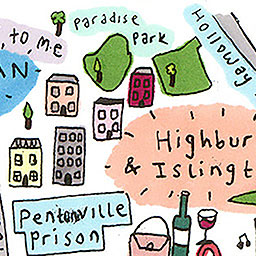 , to me
AN
Paradise
Park
Holloway
Highbur
& Islingt
Pentonville
Prison